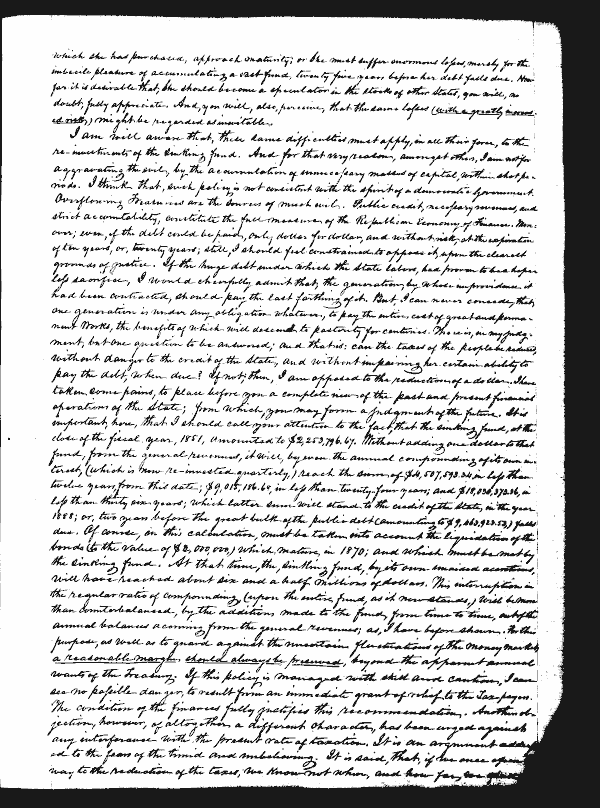 which she has purchased, approach maturity; or she must suffer enormous losses, merely for the
imbecile pleasure of accumulating a vast fund, twenty five years before her debt falls due. How
far it is desirable that, she should become a speculator in the stocks of other States, you will, no
doubt, fully appreciate. And, you will, also, perceive, that the same losses (with a greatly increas-
ed risk,) might be regarded as inevitable.
I am well aware that, these same difficulties must apply, in all their force, to the
re-investments of the sinking fund. And for that very reason, amongst others, I am not for
aggravating the evil, by the accumulation of unnecessary masses of capital, within short pe-
riods. I think that, such policy is not consistent with the spirit of a democratic Government.
Overflowing Treasuries are the sources of much evil. Public credit, necessary revenues, and
strict accountability, constitute the full measure, of the Republican Economy of Finance. More-
over, even, if the debt could be paid, only, dollar for dollar, and without risk, at the expiration
of ten years, or, twenty years; still, I should feel constrained to oppose it, upon the clearest
grounds of justice. If the huge debt under which the State labors, had proven to be a hope-
less sacrifice, I would cheerfully admit that, the generation, by whose improvidence it
had been contracted, should pay the last farthing of it. But, I can never concede, that
one generation is under any obligation whatever, to pay the entire cost of great and perma-
nent Works, the benefits of which will descend to posterity for centuries. There is, in my judg-
ment, but one question to be answered; and that is: can the taxes of the people be reduced,
without danger to the credit of the State, and without impairing her certain ability to
pay the debt, when due? If not, then, I am opposed to the reduction of a dollar. I have
taken some pains, to place before you a complete view of the past and present financial
operations of the State; from which, you may form a judgment of the future. It is
important, here, that I should call your attention to the fact, that the sinking fund, at the
close of the fiscal year, 1851, amounted to $2,253,796.67. Without adding one dollar to that
fund, from the general revenues, it will, by even the annual compounding of its own in-
terest, (which is now re-invested quarterly,) reach the sum of in less than
twelve years, from this date; in less than twenty-four years; and in
less than thirty six years; which latter sum will stand to the credit of the State, in the year
1888; or, two years before the great bulk of the public debt (amounting to falls
due. Of course, in this calculation, must be taken into account the liquidation of the
bonds (to the value of $2,000,000) which mature, in 1870; and which must be met by
the sinking fund. At that time, the sinking fund, by its own unaided accretions,
will have reached about six and a half millions of dollars. This interruption in
the regular rate of compounding (upon the entire fund, as it now stands,) will be more
than counterbalanced, by the additions made to the fund, from time to time, out of the
annual balances accruing from the general revenues; as, I have before shown. For this
purpose, as well as to guard against the uncertain fluctuations of the money market,
a reasonable margin should always be preserved, beyond the apparent annual
wants of the Treasury. If this policy is managed with skill and caution, I can
see no possible danger, to result from an immediate grant of relief, to the Taxpayers.
The condition of the finances fully justifies this recommendation. Another ob-
jection, however, of altogether a different character, has been urged against
any interference with the present rate of taxation. It is an argument address-
ed to the fears of the timid and unbelieving. It is said, that, if we once open
way to the reduction of the taxes, we know not when, and how far, we